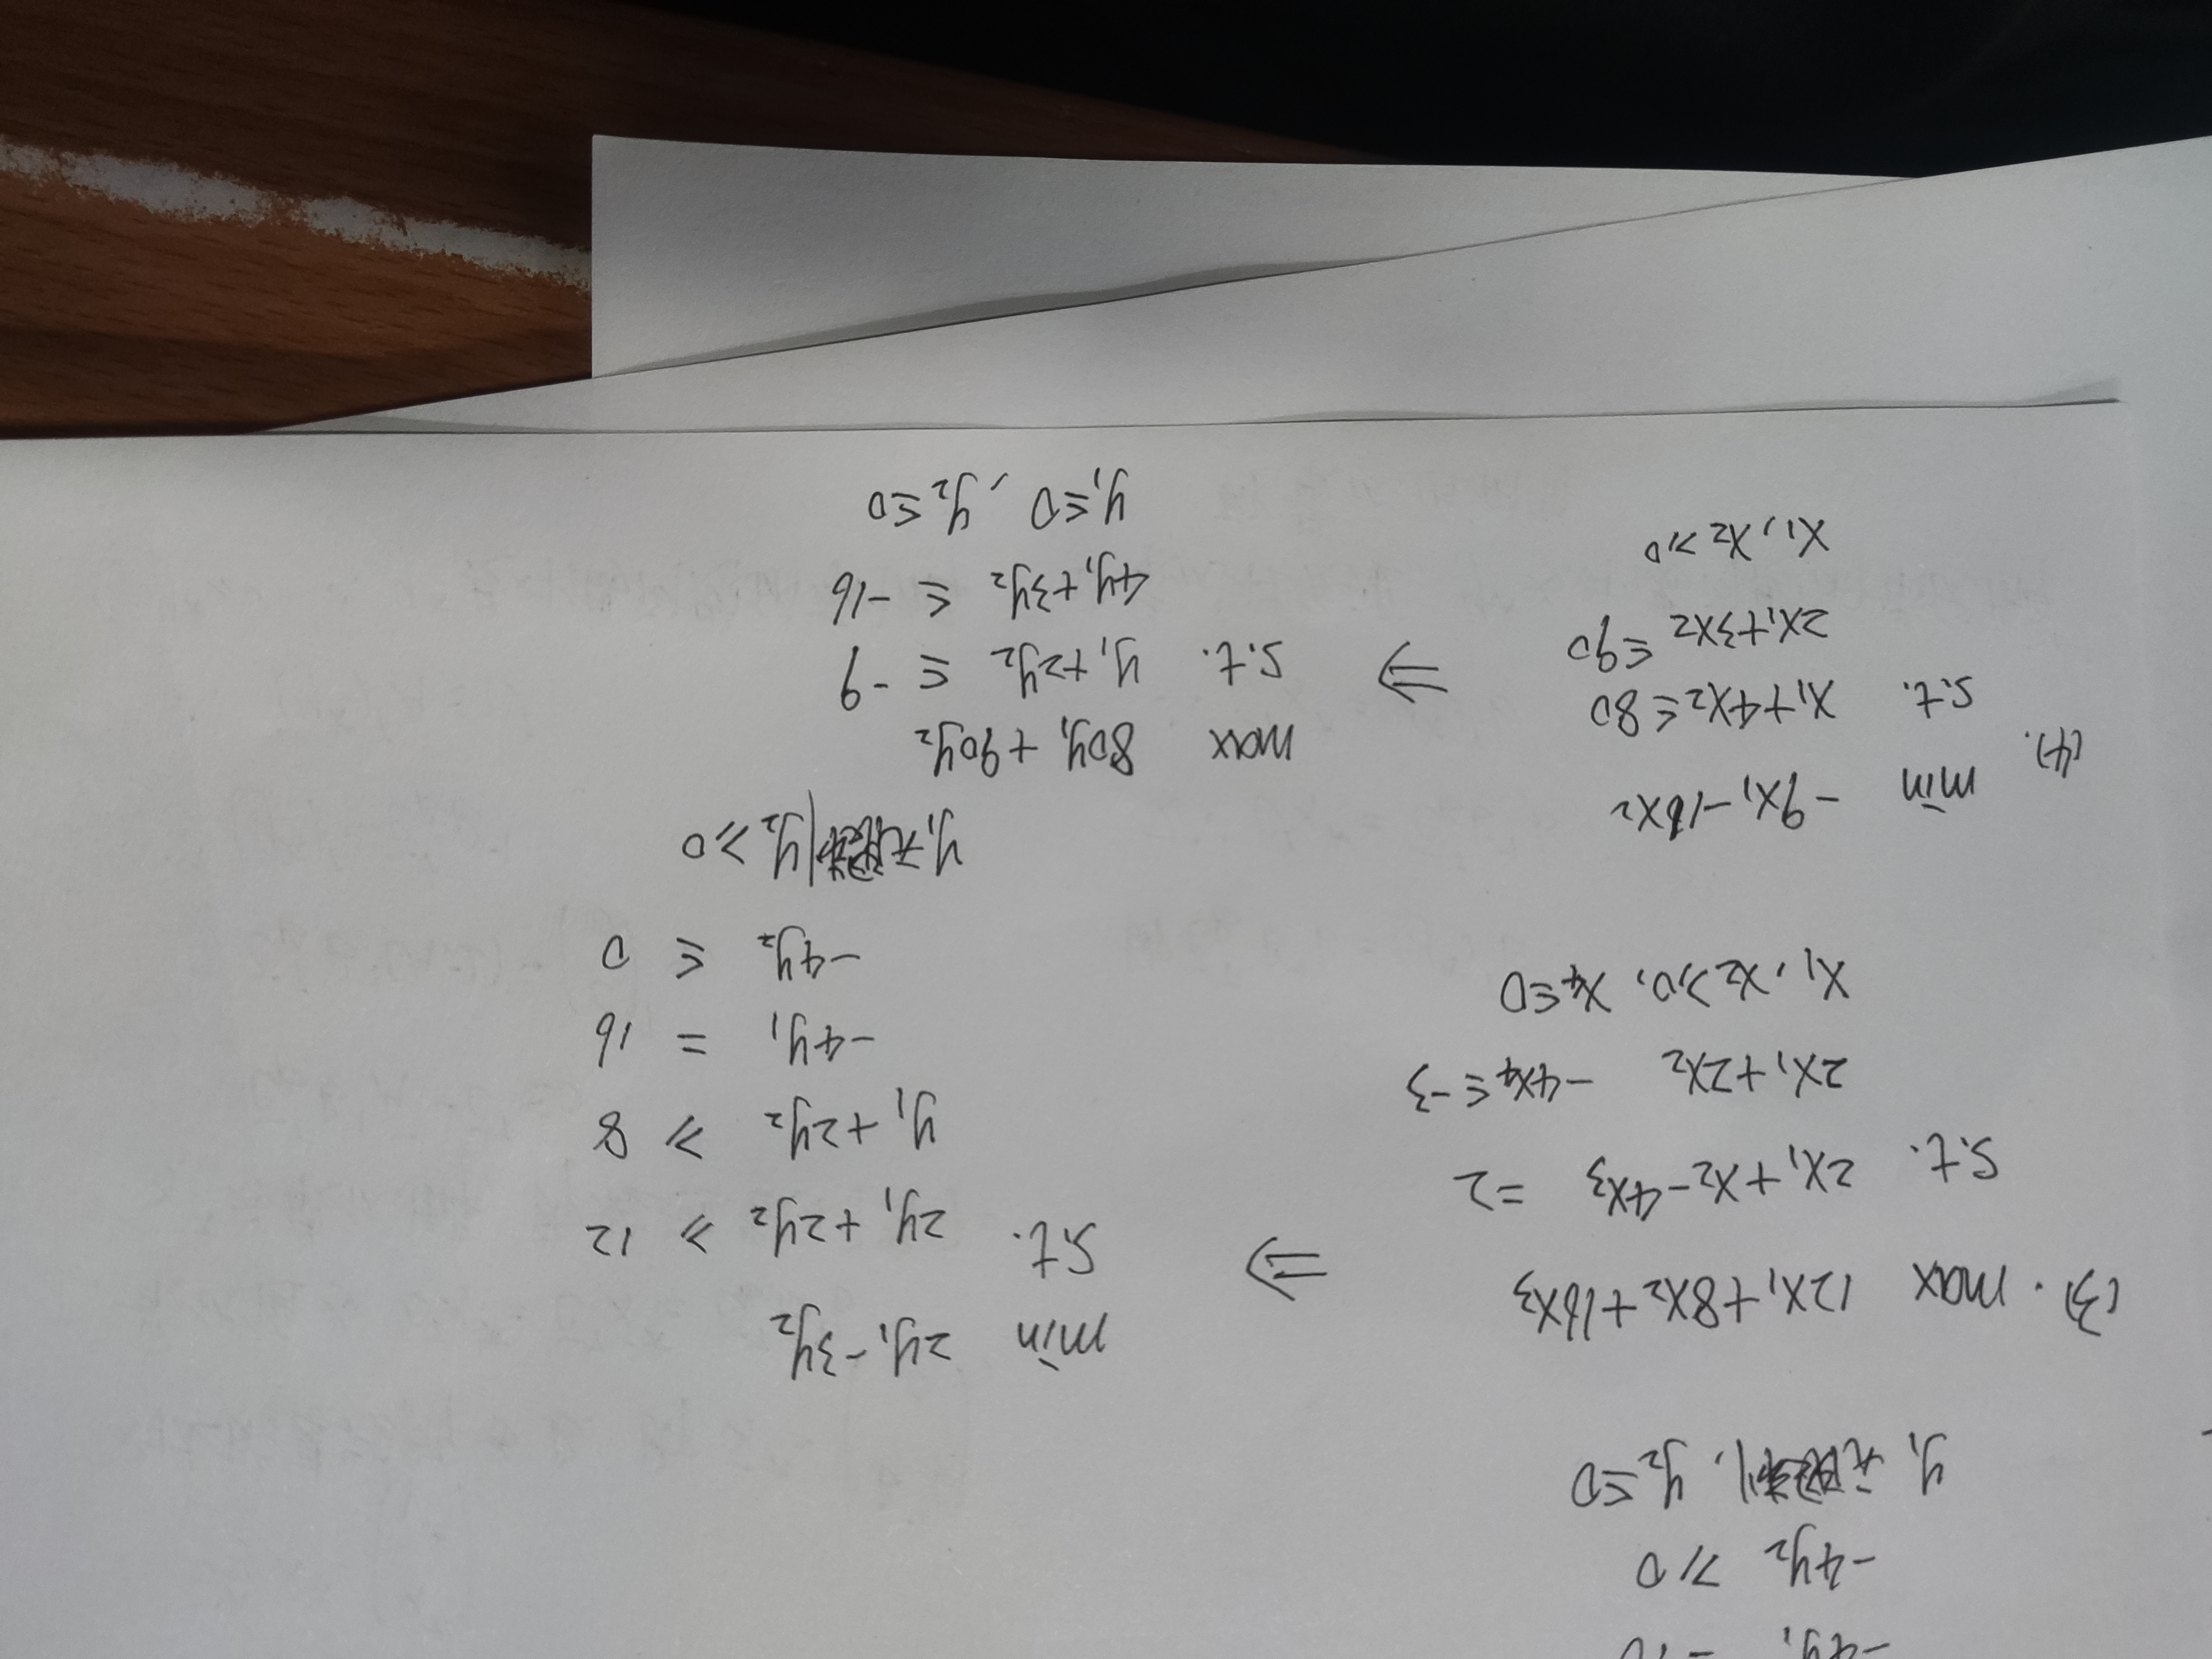 -4y₂ ≥ 0
y₁ 无 , y₂ ≤ 0
(3). max 12x₁+8x₂+16x₃
s.t. 2x₁+x₂-4x₃ =2
2x₁+2x₂ -4x₄ ≤ -3
x₁, x₂ ≥ 0, x₄ ≤ 0
⇒
min 2y₁-3y₂
s.t. 2y₁+2y₂ ≥ 12
y₁+2y₂ ≥ 8
-4y₁ = 16
-4y₂ ≤ 0
y₁ 无 y₂ ≥ 0
(4). min -9x₁-16x₂
s.t. x₁+4x₂ ≤ 80
2x₁+3x₂ ≤ 90
x₁, x₂ ≥ 0
⇒
max 80y₁+90y₂
s.t. y₁+2y₂ ≤ -9
4y₁+3y₂ ≤ -16
y₁ ≤ 0, y₂ ≤ 0